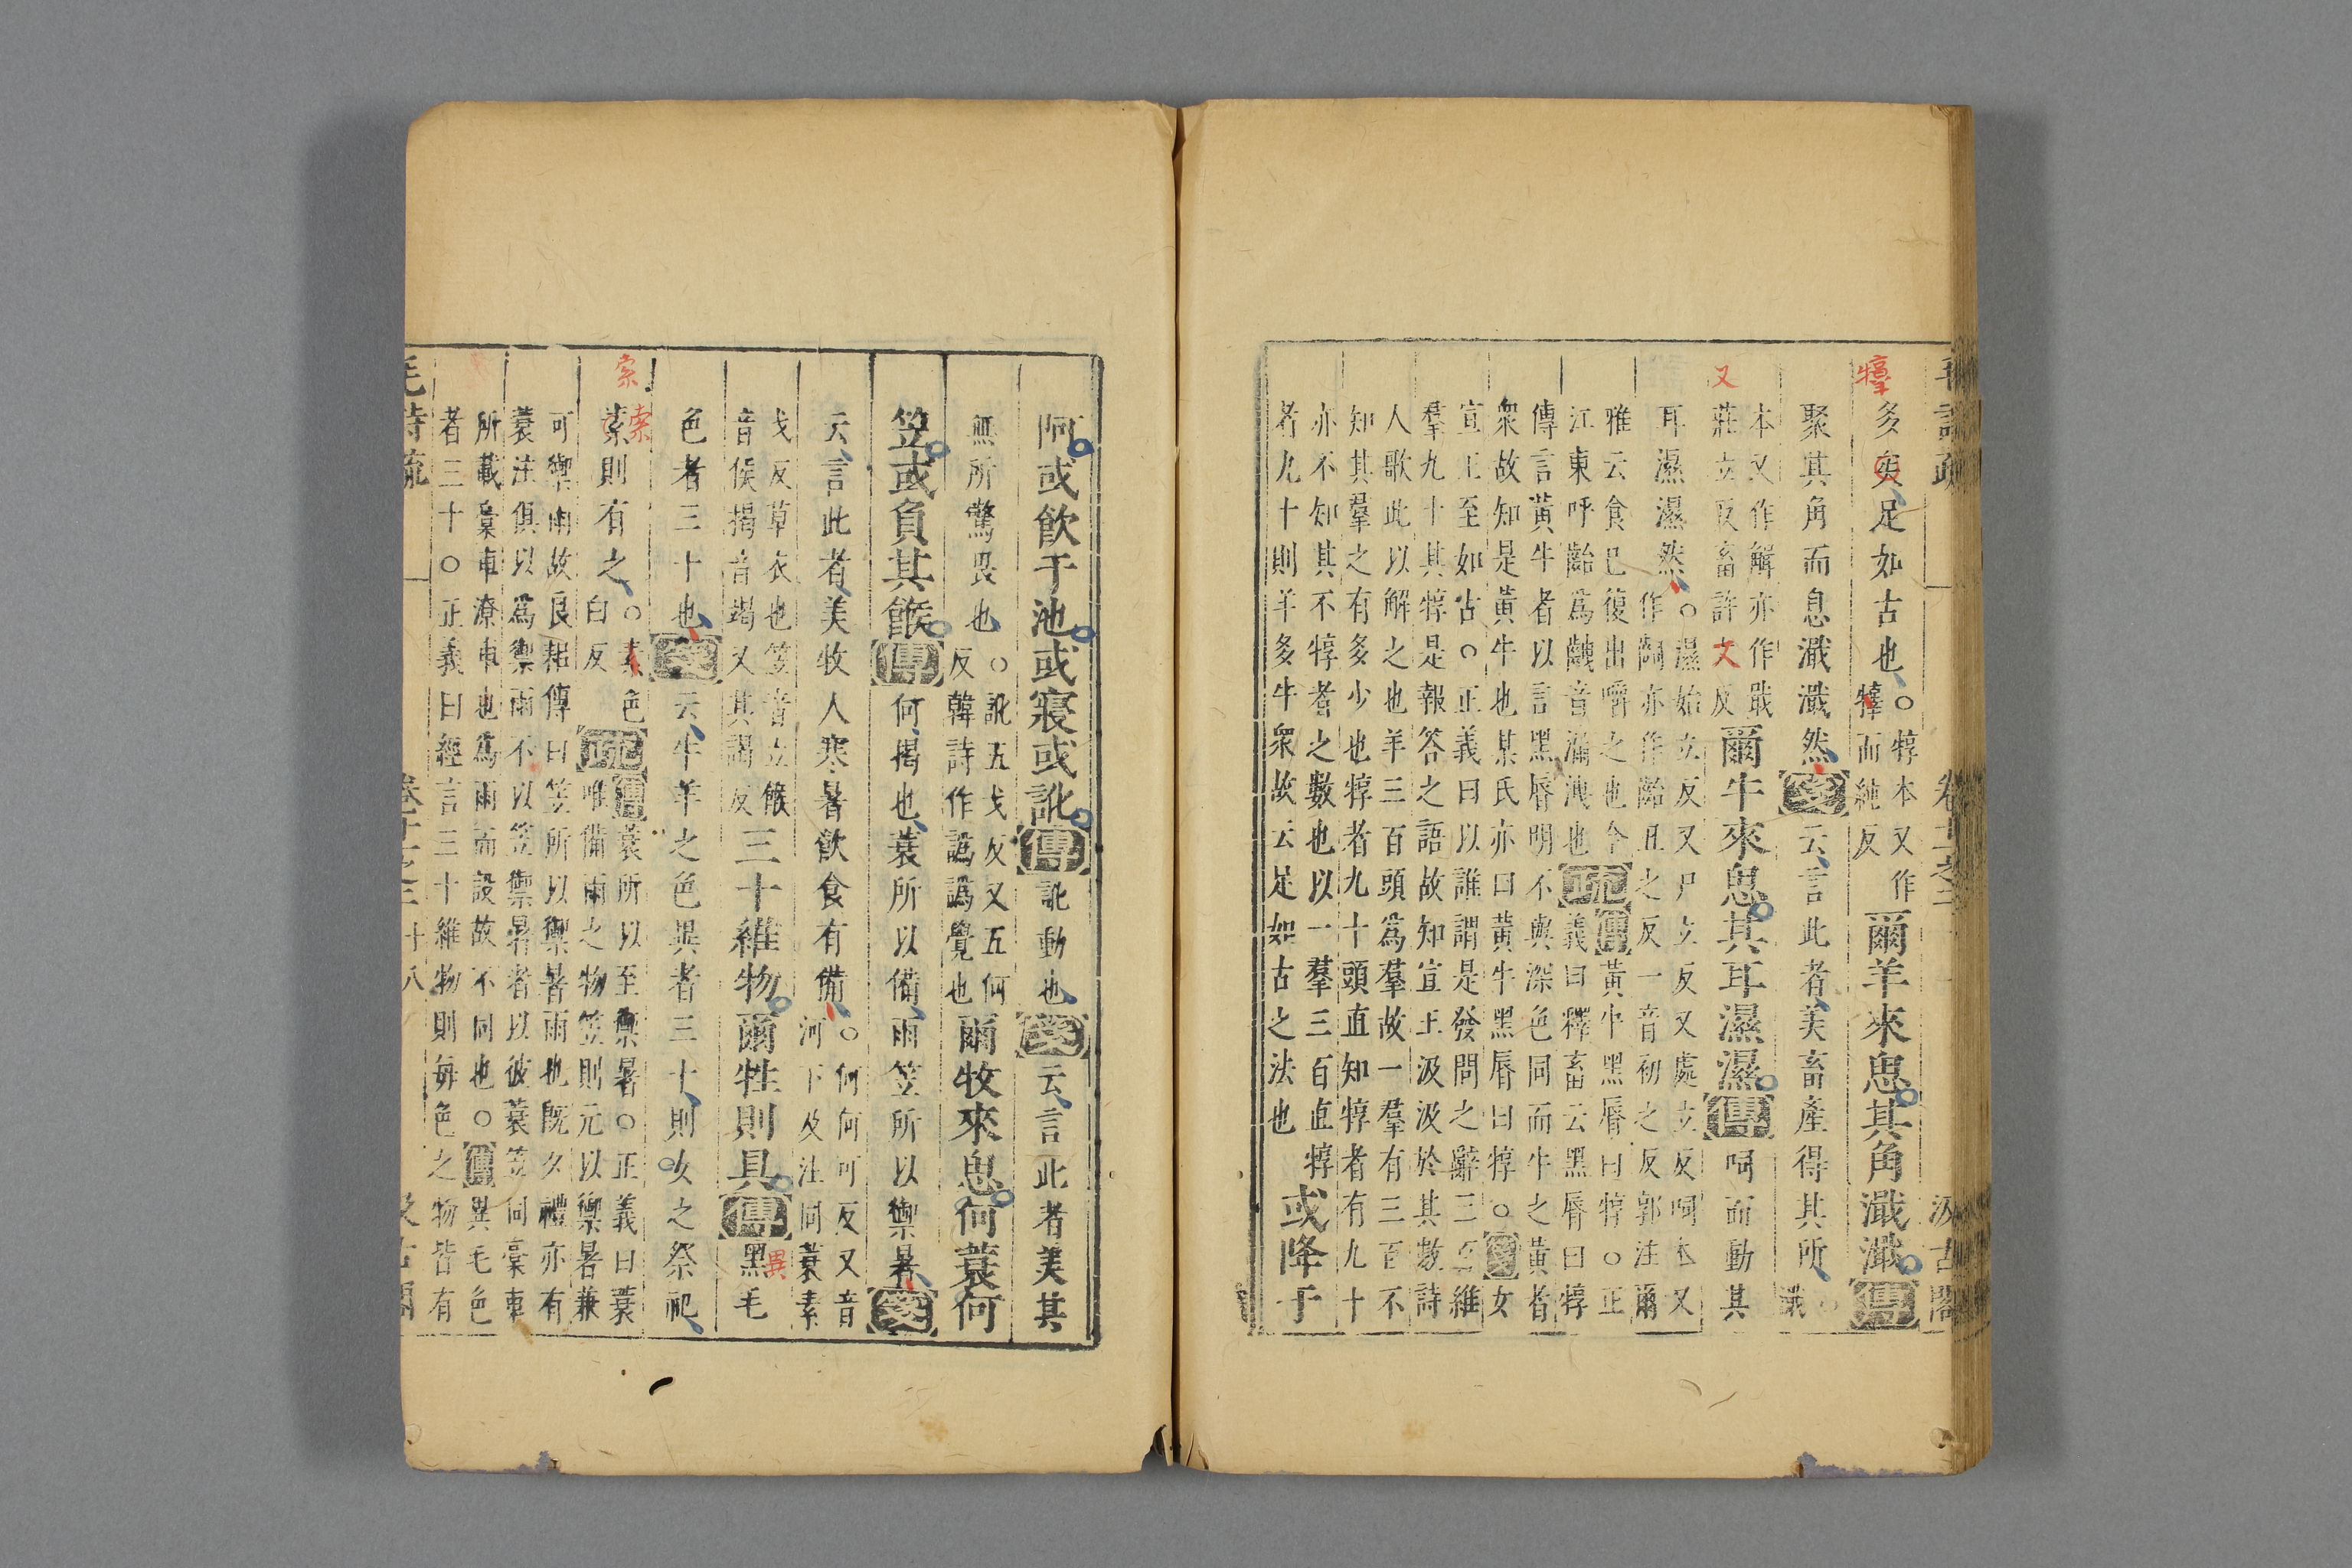 毛詩疏 卷十一之二 汲古閣
犉
多矣足如古也○犉本又作
犉而純反
爾羊來思其角濈濈傳
聚其角而息濈濈然箋云言此者美畜產得其所○
濈
又
本又作觧亦作戢
莊立反畜許又反
爾牛來思其耳濕濕傳呞而動其
耳濕濕然○濕始立反又尸立反又處立反呞本又
作呞亦作齝丑之反一音初之反郭注爾
雅云食已復出嚼之也今
江東呼齝爲齛音漏洩也
疏傳黃牛黑脣曰犉○正
義曰釋畜云黑脣曰犉
傳言黃牛者以言黑脣明不與深色同而牛之黃者
衆故知是黃牛也某氏亦曰黃牛黑脣曰犉○箋女
宣王至如古○正義曰以誰謂是發問之辭三百維
羣九十其犉是報答之語故知宣王汲汲於其數詩
人歌此以解之也羊三百頭爲羣故一羣有三百不
知其羣之有多少也犉者九十頭直知犉者有九十
亦不知其不犉者之數也以一羣三百直犉
者九十則羊多牛衆故云足如古之法也
或降于
阿或飲于池或寢或訛傳訛動也箋云言此者美其
無所驚畏也○訛五戈反又五何
反韓詩作譌譌覺也
爾牧來思何蓑何
笠或負其餱傳何揭也蓑所以備雨笠所以禦暑箋
云言此者美牧人寒暑飲食有備○何何可反又音
河下及注同蓑素
戈反草衣也笠音立餱
音侯揭音竭又其謁反
三十維物爾牲則具傳黑毛
異
色者三十也箋云牛羊之色異者三十則女之祭祀
索
索則有之○索色
白反
索
疏傳蓑所以至禦暑○正義曰蓑
唯備雨之物笠則元以禦暑兼
可禦雨故良耜傳曰笠所以禦暑雨也既夕禮亦有
蓑注俱以爲禦雨不以笠禦暑者以彼蓑笠何稾車
所載稾車潦車也爲雨而設故不同也○傳異毛色
者三十○正義曰經言三十維物則每色之物皆有
毛詩疏 卷十一之二 十八 汲古閣